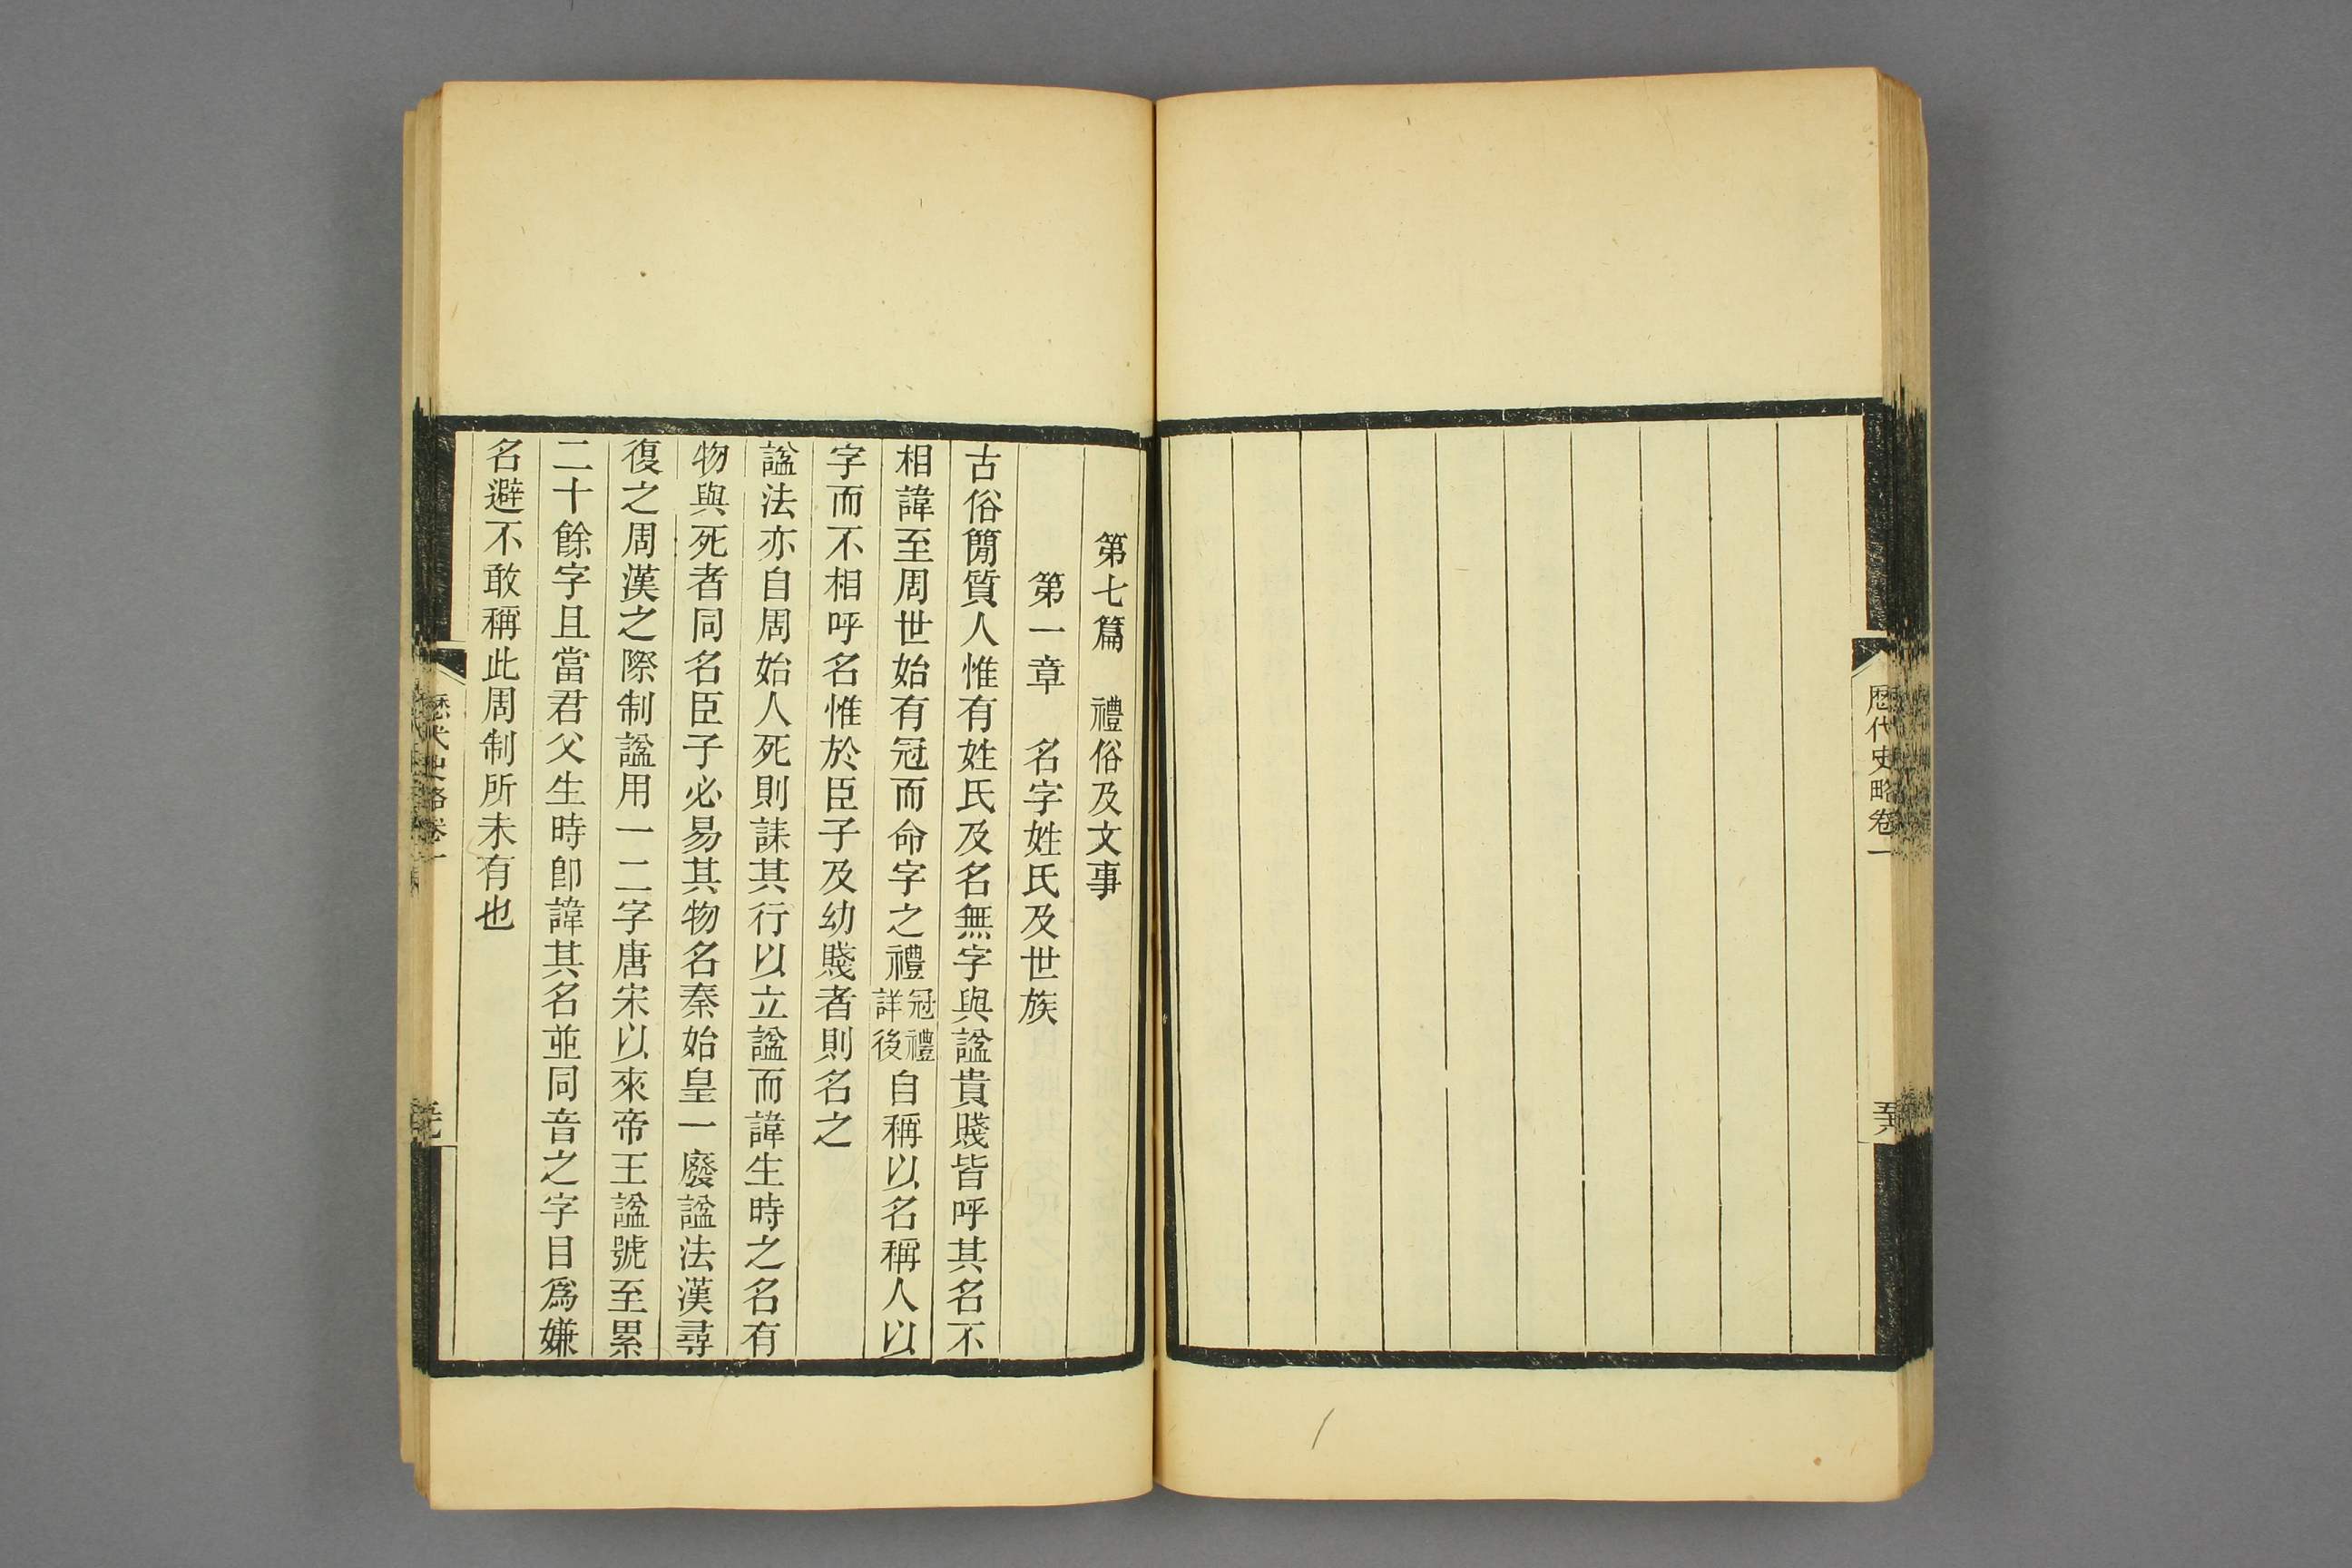 歷代史略卷一
五十八
第七篇　禮俗及文事
第一章　名字姓氏及世族
古俗簡質人惟有姓氏及名無字與諡貴賤皆呼其名不
相諱至周世始有冠而命字之禮冠禮詳後自稱以名稱人以
字而不相呼名惟於臣子及幼賤者則名之
諡法亦自周始人死則誄其行以立諡而諱生時之名有
物與死者同名臣子必易其物名秦始皇一廢諡法漢尋
復之周漢之際制諡用一二字唐宋以來帝王諡號至累
二十餘字且當君父生時卽諱其名並同音之字目爲嫌
名避不敢稱此周制所未有也
歷代史略卷一